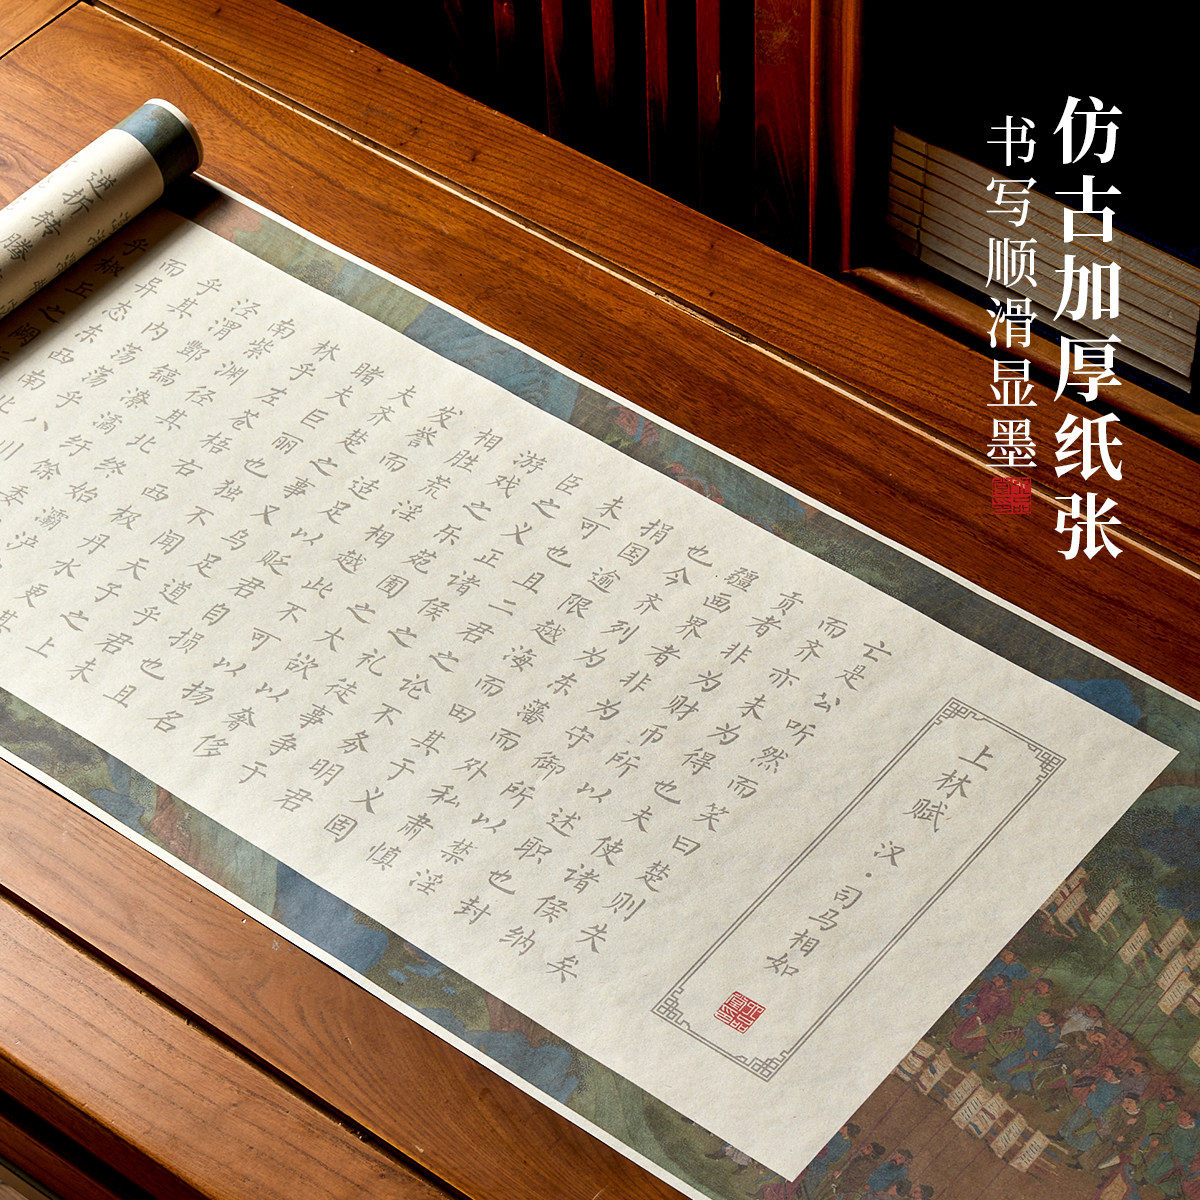 仿古加厚纸张
书写顺滑显墨
上林赋 汉·司马相如
亡是公听然而笑曰楚则失矣
而齐亦未为得也夫使诸侯纳
贡者非为财币所以述职也封
疆画界者非为守御所以禁淫
也今齐列为东藩而外私肃慎
捐国逾限越海而田其于义固
未可也且二君之论不务明君
臣之义正诸侯之礼徒事争于
游戏之乐苑囿之大欲以奢侈
相胜荒淫相越此不可以扬名
发誉而适足以贬君自损也且
夫齐楚之事又乌足道乎君未
睹夫巨丽也独不闻天子之上
林乎左苍梧右西极丹水更其
南紫渊径其北终始灞浐
泾渭酆镐潦潏纡馀委
乎其内荡荡乎八川
而异态东西南北
乎椒丘之阙
逆折转腾